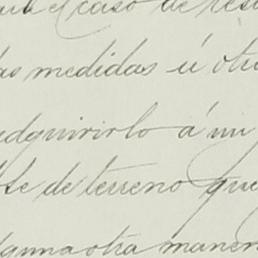 el caso de
las medidas ú otr
adquirirlo á mi
te de terreno que
lguna otra maner